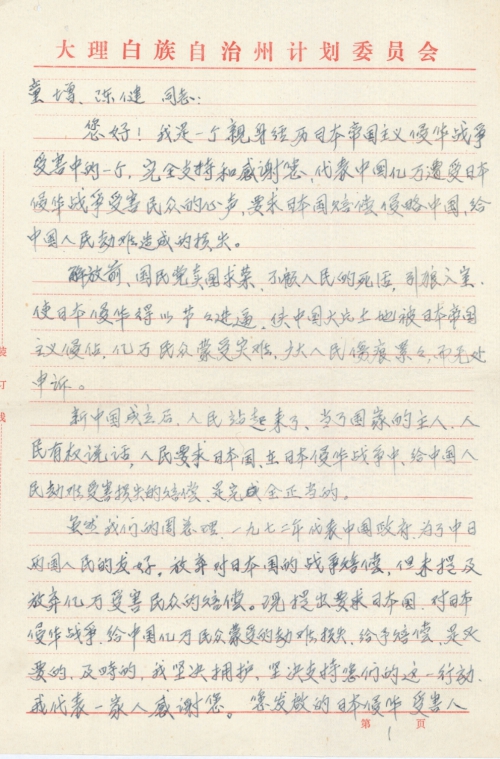 大理白族自治州计划委员会
童增、陈健 同志:
您好!我是一个亲身经历日本帝国主义侵华战争
受害中的一个,完全支持和感谢您,代表中国亿万遭受日本
侵华战争受害民众的心声,要求日本国赔偿侵略中国,给
中国人民劫难造成的损失。
解放前、国民党卖国求荣,不顾人民的死活,引狼入室,
使日本侵华得以节々进逼,使中国大片土地被日本帝国
主义侵佔,亿万民众蒙受灾难,广大人民伤痕累々,而无处
申诉。
新中国成立后,人民站起来了、当了国家的主人,人
民有权说话,人民要求日本国、在日本侵华战争中、给中国人
民劫难受害损失的赔偿、是完成全正当的。
虽然我们的周总理,一九七二年代表中国政府,为了中日
两国人民的友好,放弃对日本国的战争赔偿,但未提及
放弃亿万受害民众的赔偿。现提出要求日本国,对日本
侵华战争,给中国亿万民众蒙受的劫难损失,给予赔偿,是必
要的,及时的,我坚决拥护,坚决支持您们的这一行动,
我代表一家人感谢您。您发放的日本侵华受害人
第 1 页
装
订
线